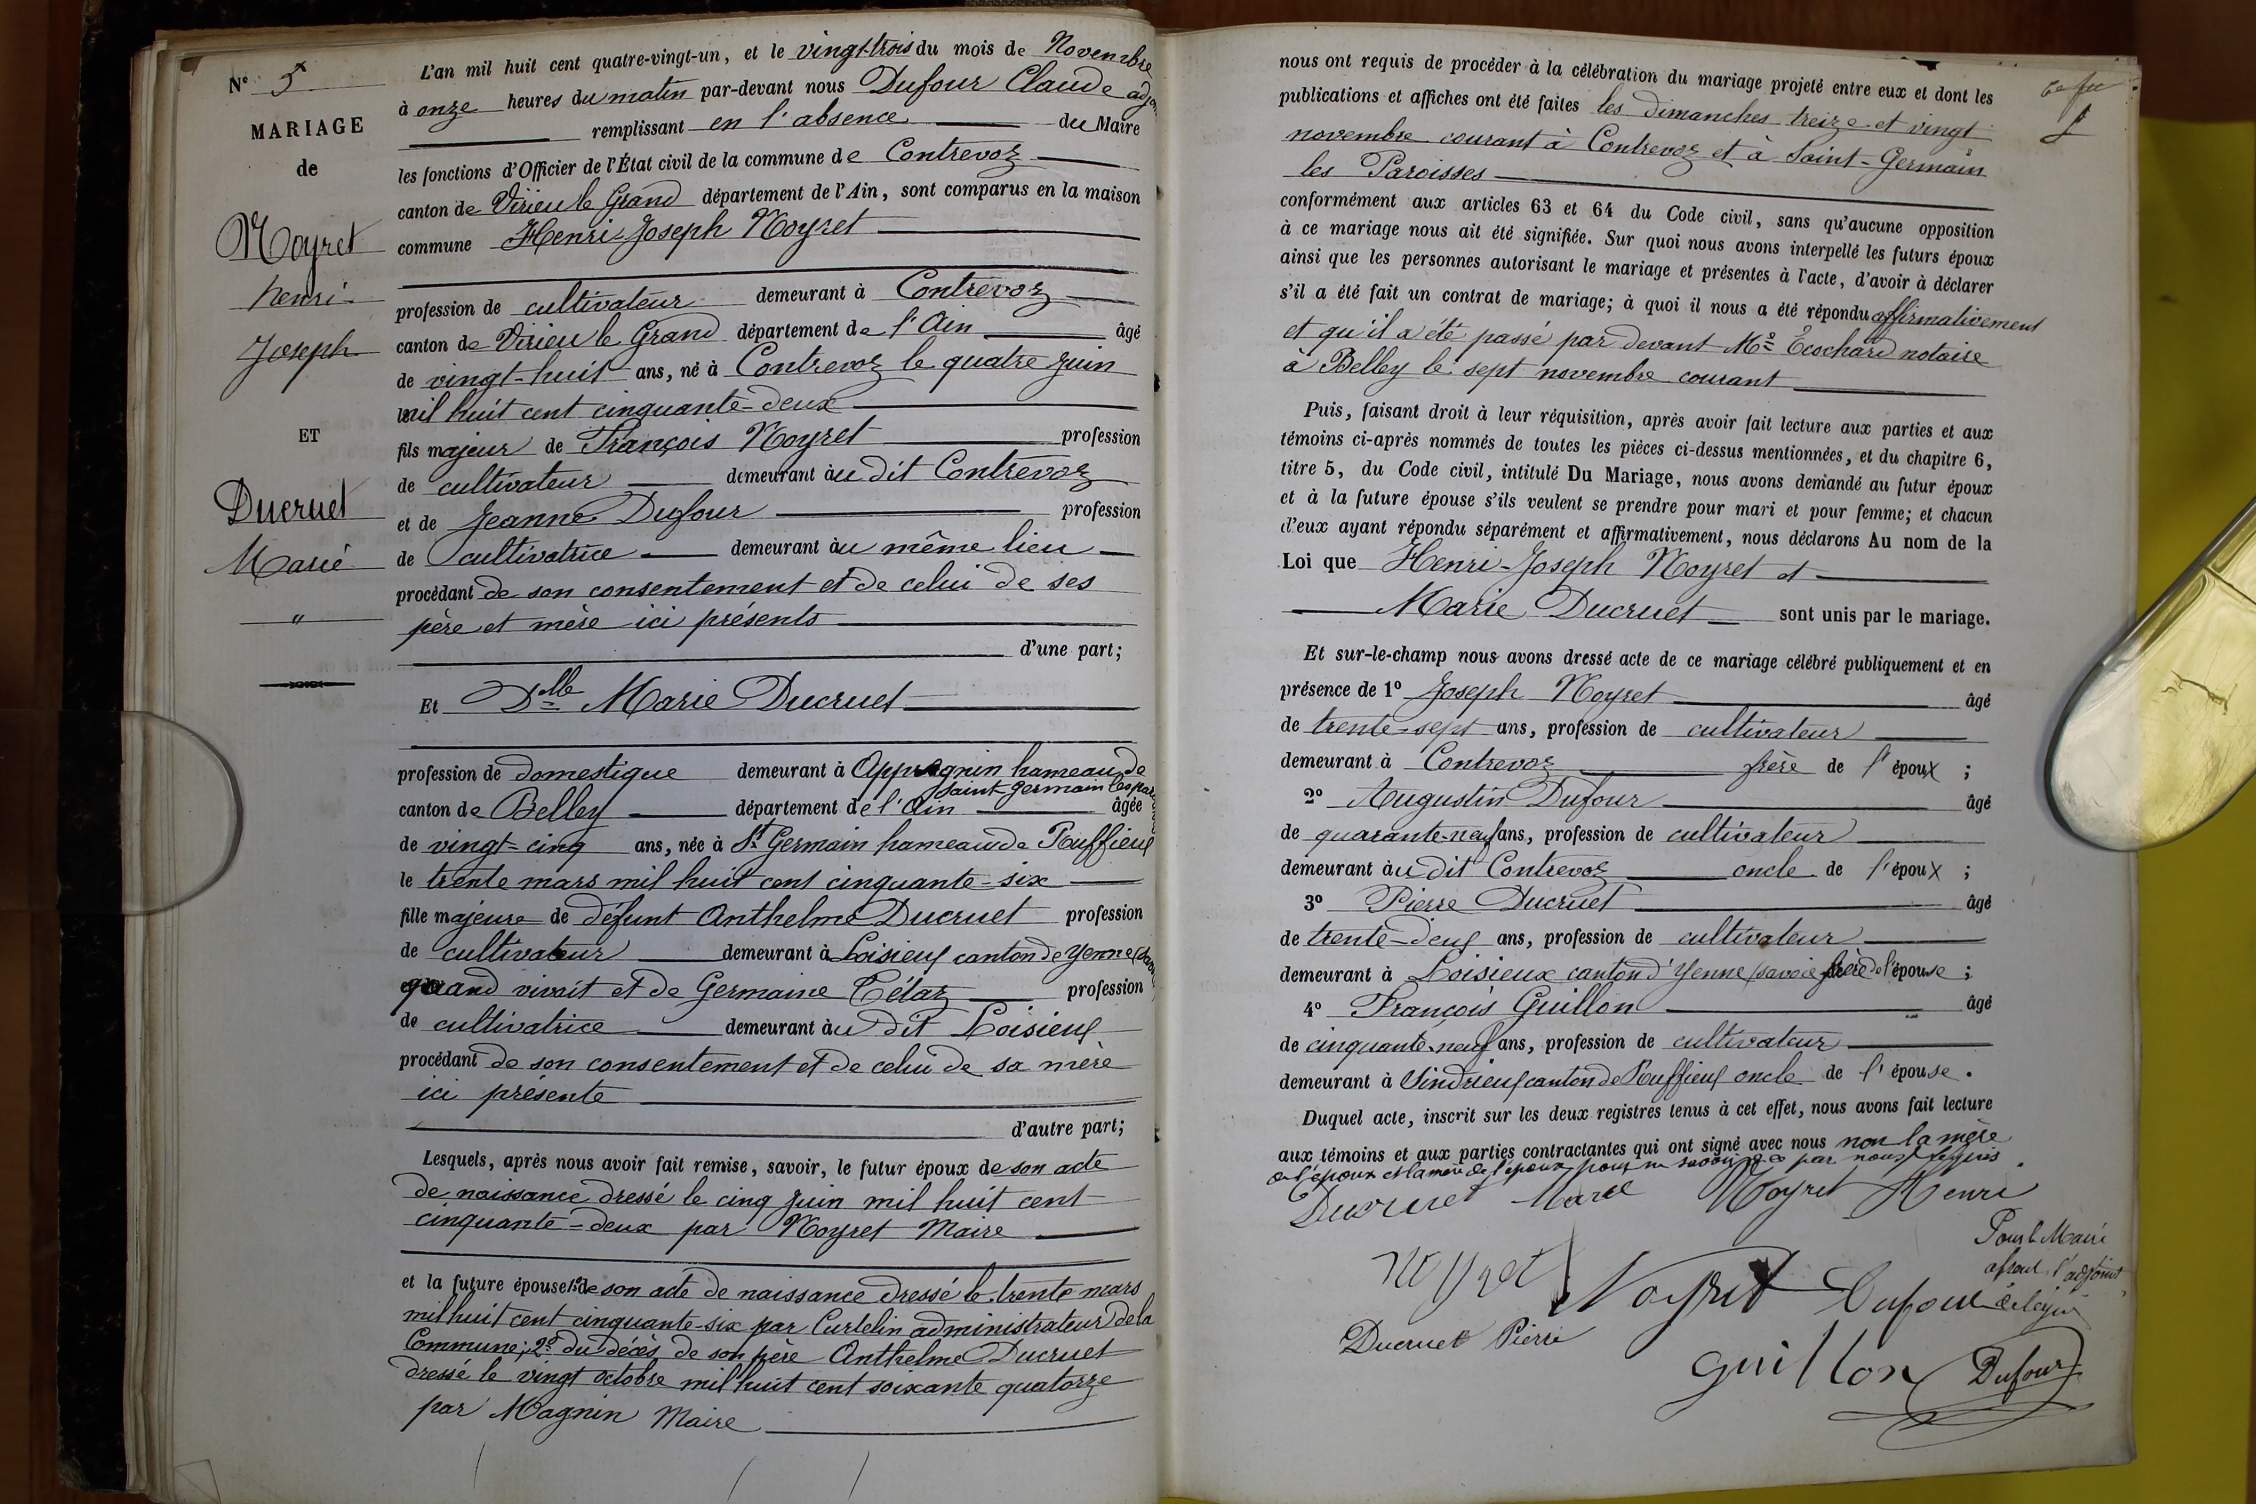 N° 5
MARIAGE
de
Noyret
henri
Joseph
ET
Ducruet
Marie
"
L'an mil huit cent quatre-vingt-un, et le vingt-trois du mois de Novembre
à onze heures du matin par-devant nous Dufour Claude adjo
remplissant en l'absence du Maire
les fonctions d'Officier de l'État civil de la commune de Contrevoz
canton de Virieu le Grand département de l'Ain, sont comparus en la maison
commune Henri-Joseph Noyret
profession de cultivateur demeurant à Contrevoz
canton de Virieu le Grand département de l'Ain âgé
de vingt-huit ans, né à Contrevoz le quatre juin
mil huit cent cinquante-deux
fils majeur de François Noyret profession
de cultivateur demeurant au dit Contrevoz
et de Jeanne Dufour profession
de cultivatrice demeurant au même lieu
procédant de son consentement et de celui de ses
père et mère ici présents
d'une part;
Et Dlle Marie Ducruet
profession de domestique demeurant à Appregnin hameau de
Saint germain les par
canton de Belley département de l'Ain âgée
de vingt-cinq ans, née à St Germain hameau de Ruffieux
le trente mars mil huit cent cinquante-six
fille majeure de défunt Anthelme Ducruet profession
de cultivateur demeurant à Loisieux canton de Yenne (Savoie
quand vivait et de Germaine Télaz profession
de cultivatrice demeurant au dit Loisieux
procédant de son consentement et de celui de sa mère
ici présente
d'autre part;
Lesquels, après nous avoir fait remise, savoir, le futur époux de son acte
de naissance dressé le cinq juin mil huit cent
cinquante-deux par Noyret Maire
et la future épouse 1° de son acte de naissance dressé le trente mars
mil huit cent cinquante-six par Curtelin administrateur de la
Commune; 2° du décès de son père Anthelme Ducruet
dressé le vingt octobre mil huit cent soixante quatorze
par Magnin Maire
nous ont requis de procéder à la célébration du mariage projeté entre eux et dont les
publications et affiches ont été faites les dimanches treize et vingt
novembre courant à Contrevoz et à Saint-Germain
les Paroisses
conformément aux articles 63 et 64 du Code civil, sans qu'aucune opposition
à ce mariage nous ait été signifiée. Sur quoi nous avons interpellé les futurs époux
ainsi que les personnes autorisant le mariage et présentes à l'acte, d'avoir à déclarer
s'il a été fait un contrat de mariage; à quoi il nous a été répondu affirmativement
et qu'il a été passé par devant Me Ecochard notaire
à Belley le sept novembre courant
Puis, faisant droit à leur réquisition, après avoir fait lecture aux parties et aux
témoins ci-après nommés de toutes les pièces ci-dessus mentionnées, et du chapitre 6,
titre 5, du Code civil, intitulé Du Mariage, nous avons demandé au futur époux
et à la future épouse s'ils veulent se prendre pour mari et pour femme; et chacun
d'eux ayant répondu séparément et affirmativement, nous déclarons Au nom de la
Loi que Henri-Joseph Noyret et
Marie Ducruet sont unis par le mariage.
Et sur-le-champ nous avons dressé acte de ce mariage célébré publiquement et en
présence de 1° Joseph Noyret âgé
de trente-sept ans, profession de cultivateur
demeurant à Contrevoz frère de l'époux ;
2° Augustin Dufour âgé
de quarante-neuf ans, profession de cultivateur
demeurant au dit Contrevoz oncle de l'époux ;
3° Pierre Ducruet âgé
de trente-deux ans, profession de cultivateur
demeurant à Loisieux canton d'Yenne (savoie frère de l'épouse ;
4° François Guillon âgé
de cinquante-neuf ans, profession de cultivateur
demeurant à Vindrieux canton de Ruffieux oncle de l'épouse.
Duquel acte, inscrit sur les deux registres tenus à cet effet, nous avons fait lecture
aux témoins et aux parties contractantes qui ont signé avec nous non la mère
de l'époux et la mère de l'épouse pour ne savoir de ce par nous requis
Ducruet Marie Noyret Henri
Pour le Maire
absent l'adjoint
Noyret Noyret Dufour délégué
Ducruet Pierre
Guillon Dufour